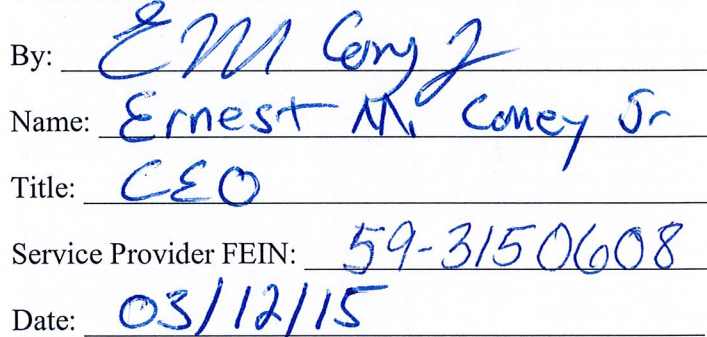 By: EM Coney Jr
Name: Ernest M. Coney Jr
Title: CEO
Service Provider FEIN: 59-3150608
Date: 03/12/15